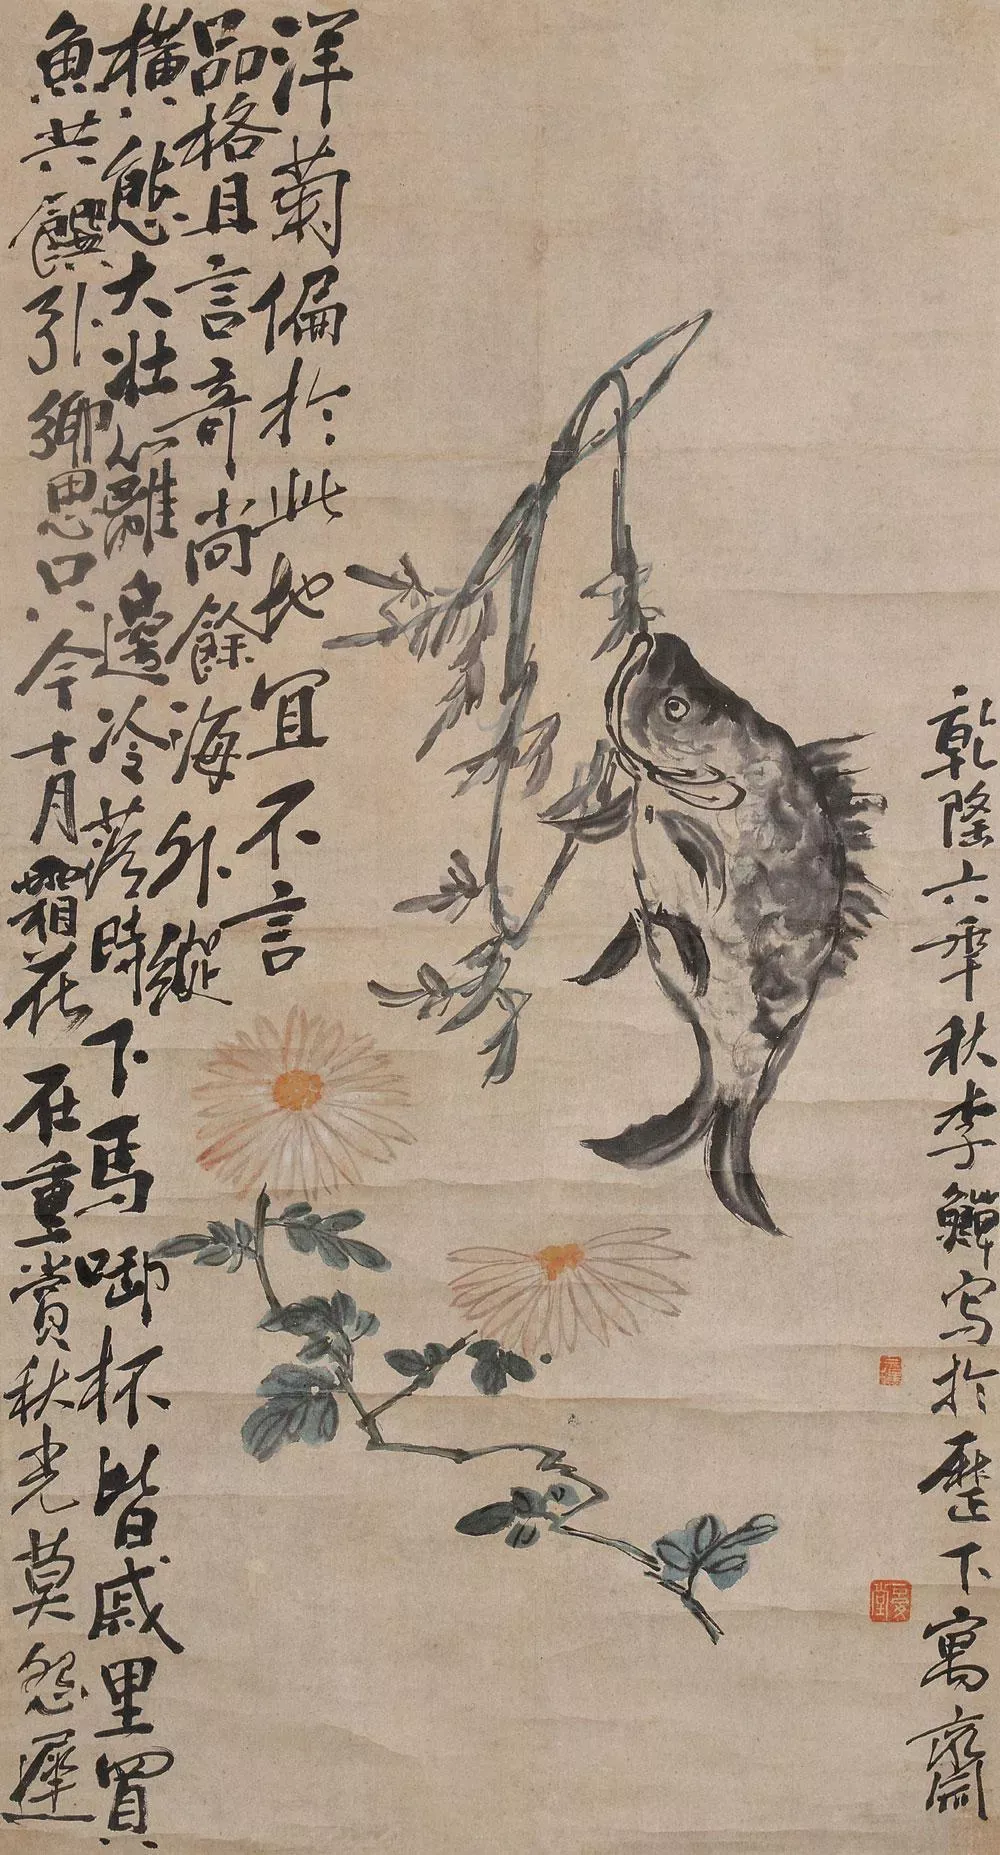 乾隆六年秋李鱓写於歷下寓齋
洋菊偏於此地宜不言
品格且言奇尚餘海外縱
橫態大壯籬邊冷落時下馬啣杯皆戚里買
魚共饌引鄉思只今十月霜花在重賞秋光莫怨遲